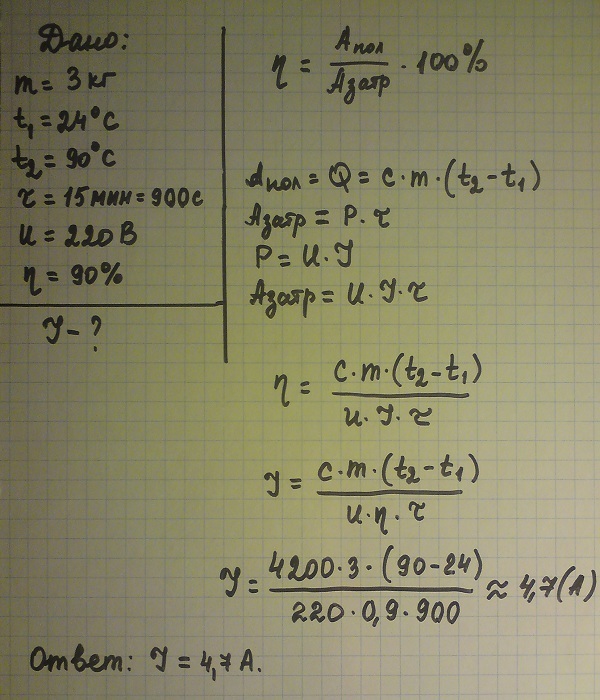 Дано:
m = 3 кг
t₁ = 24°C
t₂ = 90°C
τ = 15 мин = 900 с
U = 220 В
η = 90%
I - ?
η = Aпол / Aзатр · 100%
Aпол = Q = c · m · (t₂ - t₁)
Aзатр = P · τ
P = U · I
Aзатр = U · I · τ
η = c · m · (t₂ - t₁) / U · I · τ
I = c · m · (t₂ - t₁) / U · η · τ
I = 4200 · 3 · (90 - 24) / 220 · 0,9 · 900 ≈ 4,7 (A)
Ответ: I = 4,7 A.